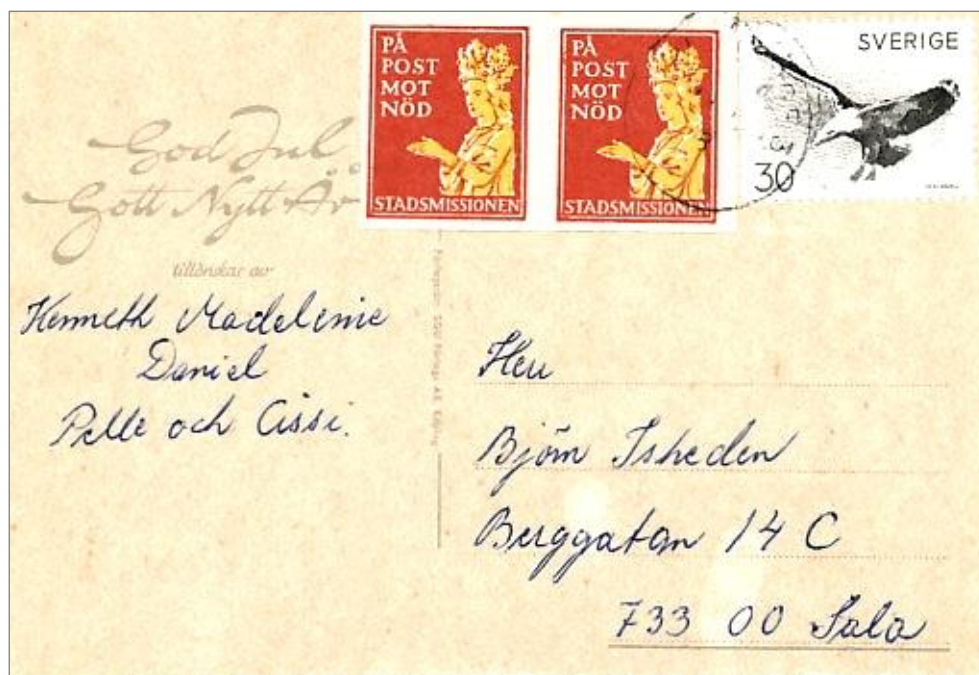 PÅ
POST
MOT
NÖD
STADSMISSIONEN
PÅ
POST
MOT
NÖD
STADSMISSIONEN
SVERIGE
30
God Jul
Gott Nytt År
tillönskar av
Kenneth Madeleine
Daniel
Pelle och Cissi.
Herr
Björn Isheden
Berggatan 14 C
733 00 Sala